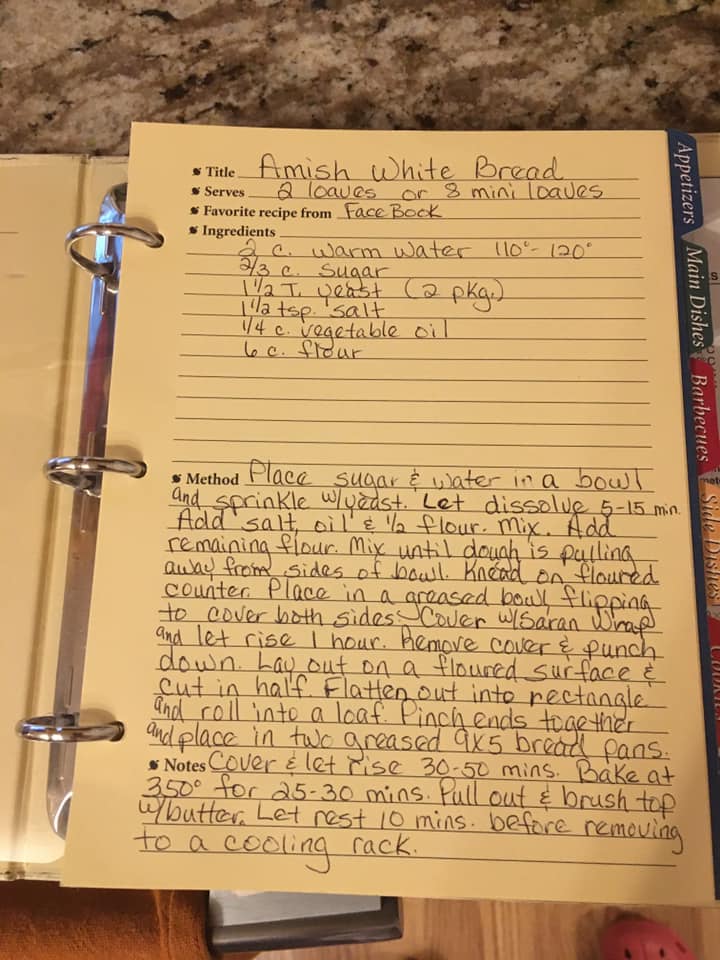 Title Amish White Bread
Serves 2 loaves or 8 mini loaves
Favorite recipe from FaceBook
Ingredients
2 c. warm water 110°-120°
2/3 c. sugar
1 1/2 T. yeast (2 pkg.)
1 1/2 tsp. salt
1/4 c. vegetable oil
6 c. flour
Method Place sugar & water in a bowl
and sprinkle w/yeast. Let dissolve 5-15 min.
Add salt, oil & 1/2 flour. Mix. Add
remaining flour. Mix until dough is pulling
away from sides of bowl. Knead on floured
counter. Place in a greased bowl, flipping
to cover both sides. Cover w/Saran Wrap
and let rise 1 hour. Remove cover & punch
down. Lay out on a floured surface &
cut in half. Flatten out into rectangle
and roll into a loaf. Pinch ends together
and place in two greased 9x5 bread pans.
Notes Cover & let rise 30-50 mins. Bake at
350° for 25-30 mins. Pull out & brush top
w/butter. Let rest 10 mins. before removing
to a cooling rack.
Appetizers
Main Dishes
Barbecues
Side Dishes